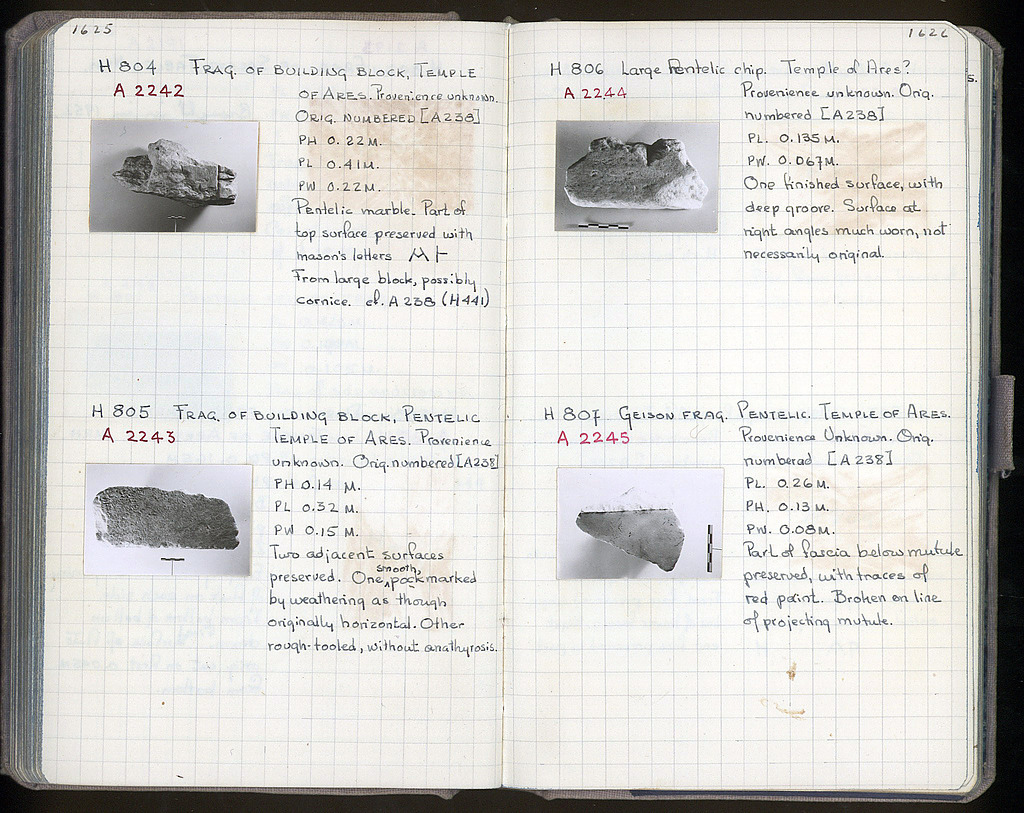 1625
H 804 FRAG. OF BUILDING BLOCK, TEMPLE
A 2242
OF ARES. Provenience unknown.
ORIG. NUMBERED [A238]
PH 0.22 M.
PL 0.41 M.
PW 0.22 M.
Pentelic marble. Part of
top surface preserved with
mason's letters
From large block, possibly
cornice. cf. A 238 (H441)
H 805 FRAG. OF BUILDING BLOCK, PENTELIC
A 2243
TEMPLE OF ARES. Provenience
unknown. Orig. numbered [A238]
PH 0.14 M.
PL 0.32 M.
PW 0.15 M.
Two adjacent surfaces
preserved. One smooth, pockmarked
by weathering as though
originally horizontal. Other
rough-tooled, without anathyrosis.
1626
H 806 Large Pentelic chip. Temple of Ares?
A 2244
Provenience unknown. Orig.
numbered [A238]
PL. 0.135 M.
PW. 0.067 M.
One finished surface, with
deep groove. Surface at
right angles much worn, not
necessarily original.
H 807 GEISON FRAG. PENTELIC. TEMPLE OF ARES.
A 2245
Provenience Unknown. Orig.
numberad [A 238]
PL. 0.26 M.
PH. 0.13 M.
PW. 0.08 M.
Part of fascia below mutule
preserved, with traces of
red paint. Broken on line
of projecting mutule.
S.